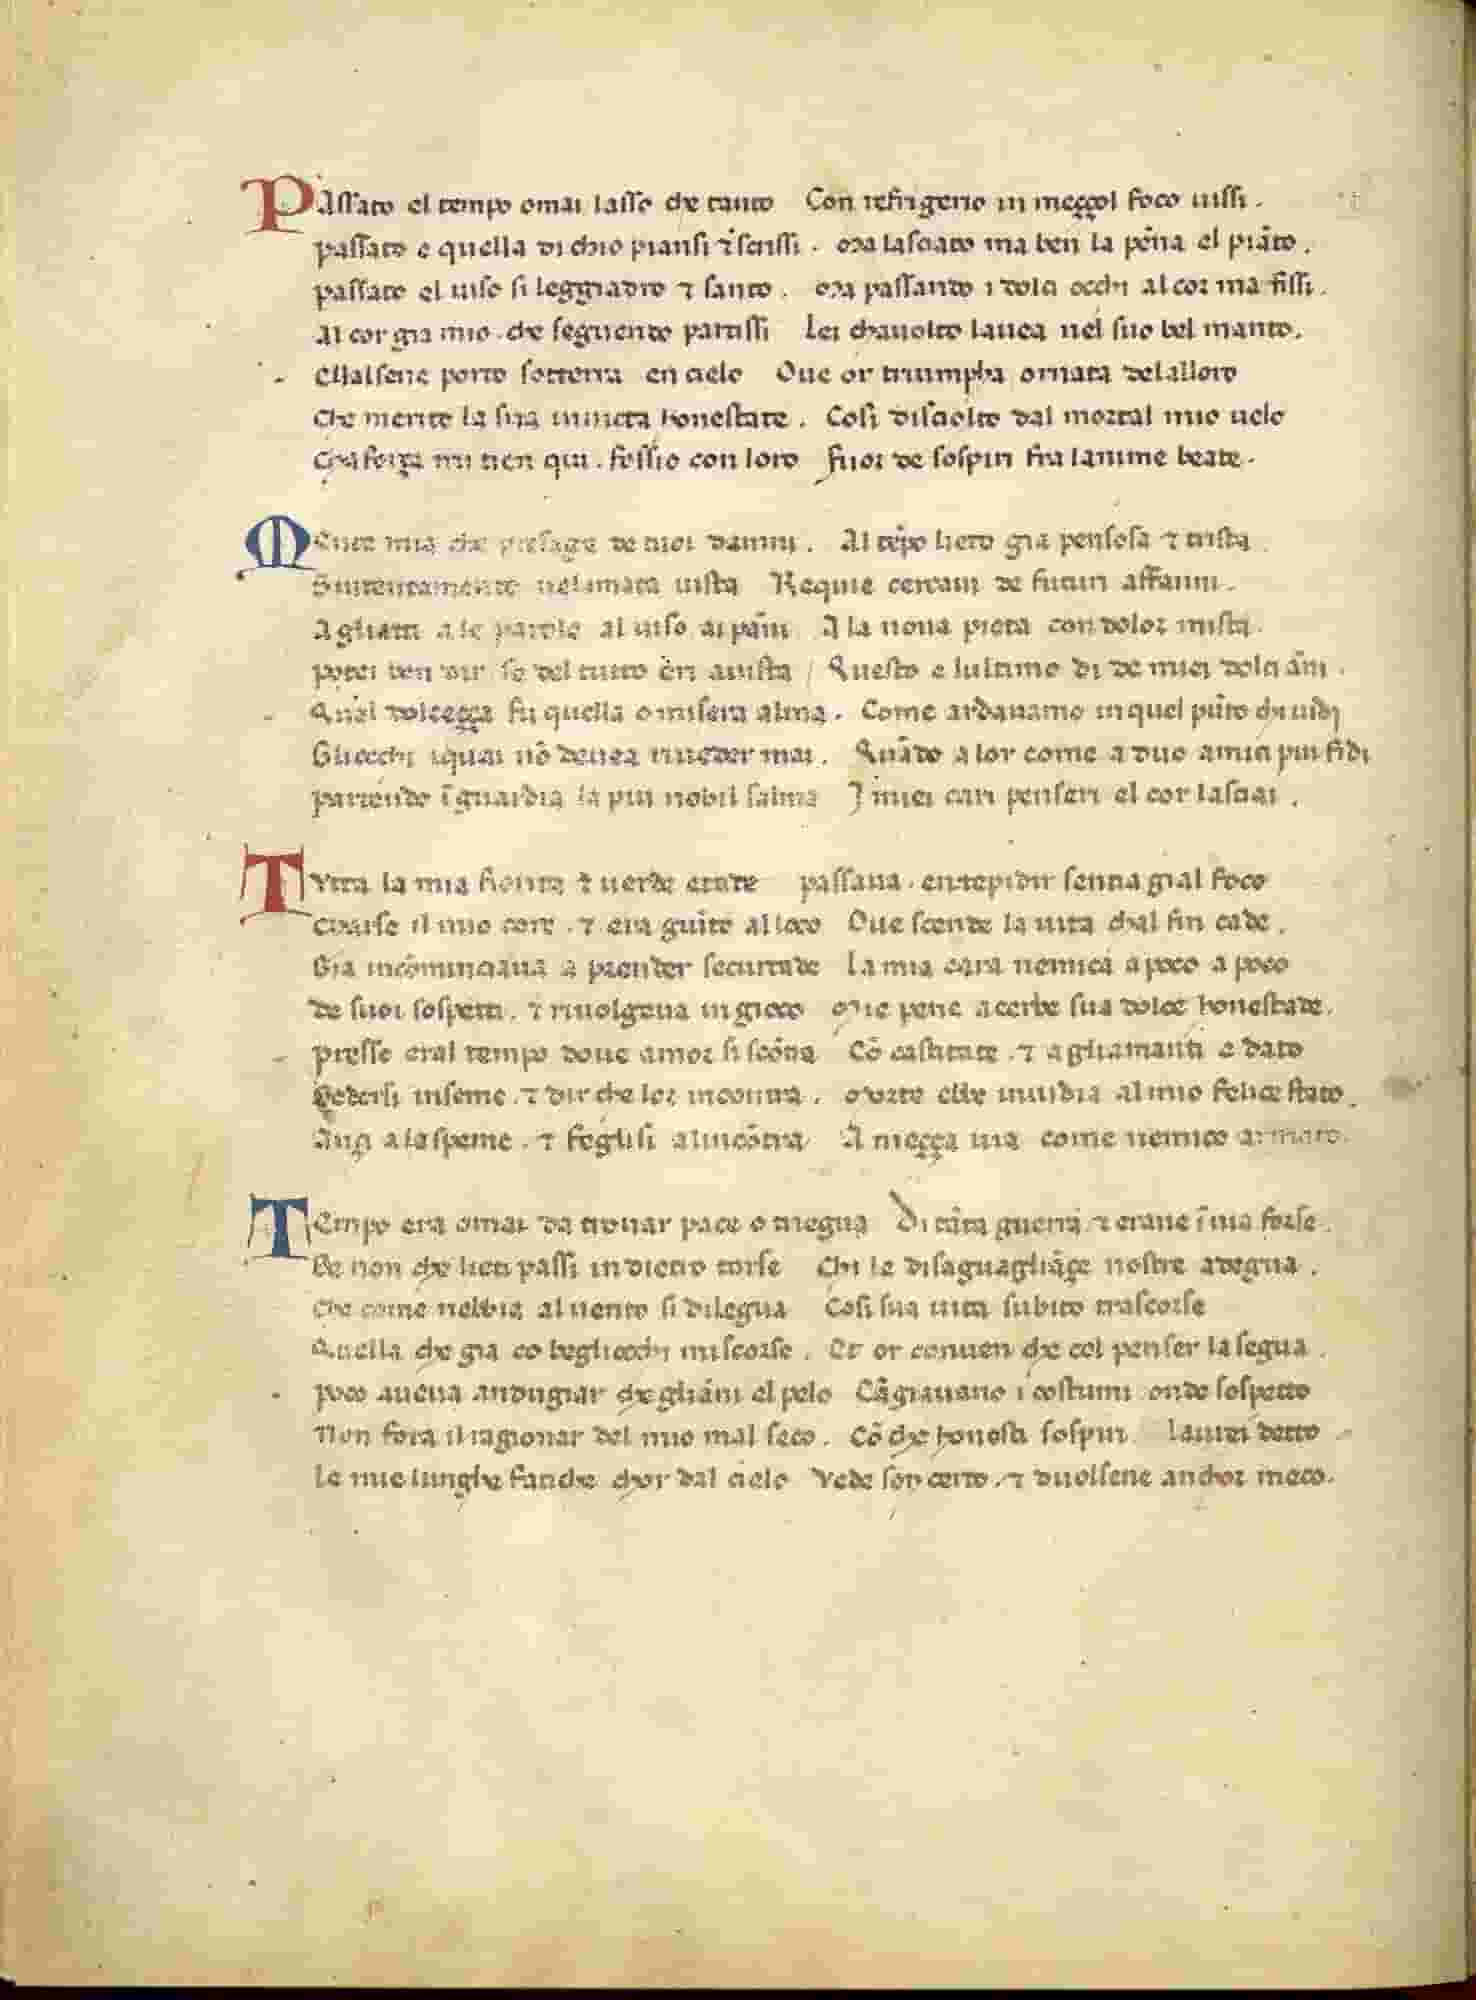 PAssato el tempo omai lasso che tanto Con refrigerio in meççol foco uissi .
passato e quella di chio piansi ⁊ scrissi . Ma lasciato ma ben la pēna el piāto .
passato el uiso si leggiadro ⁊ santo . Ma passando i dolci occhi al cor ma fissi .
Al cor gia mio . che seguendo partissi Lei chauolto lauea nel suo bel manto .
Ellalsene porto sotterra en cielo Oue or triumpha ornata delalloro
Che merito la sua inuicta honestate . Cosi disciolto dal mortal mio uelo
Cha força mi tien qui . fossio con loro Fuor de sospiri fra lanime beate .
MEnte mia che presaga de tuoi danni . Al tēpo lieto gia pensosa ⁊ trista
Sintentamente nelamata uista Requie cercaui de futuri affanni .
Agliatti a le parole al uiso ai pāni A la noua pieta con dolor mista .
potei ben dir se del tutto eri auista Questo e lultimo di de miei dolci āni .
Qual dolceçça fu quella o misera alma . Come ardauamo in quel pūto chi uidi
Gliocchi iquai nō deuea riueder mai . Quādo a lor come a duo amici piu fidi
partendo ī guardia la piu nobil salma I miei cari penseri el cor lasciai .
TVtta la mia fiorita ⁊ uerde etate passaua . entepidir sentia gial foco
Charse il mio core . ⁊ era giūto al loco Oue scende la uita chal fin cade .
Gia incōminciaua a prender securtade La mia cara nemica a poco a poco
de suoi sospetti . ⁊ riuolgeua in gioco Mie pene acerbe sua dolce honestade .
presso eral tempo doue amor si scōtra Cō castitate . ⁊ agliamanti e dato
Sedersi inseme . ⁊ dir che lor incontra . Morte ebbe inuidia al mio felice stato .
Ançi a la speme . ⁊ feglisi alincōtra A meçça uia come nemico armato .
TEmpo era omai da trouar pace o tregua Di tāta guerra ⁊ erane ī uia forse .
Se non che lieti passi indietro torse Chi le disaguagliāçe nostre adegua .
Che come nebbia al uento si dilegua Cosi sua uita subito trascorse
Quella che gia co begliocchi mi scorse . Et or conuen che col penser la segua .
poco aueua andugiar che gliāni el pelo Cāgiauano i costumi onde sospetto
Non fora il ragionar del mio mal seco . Cō che honesti sospiri laurei detto
Le mie lunghe fatiche chor dal cielo Vede son certo . ⁊ duolsene anchor meco .